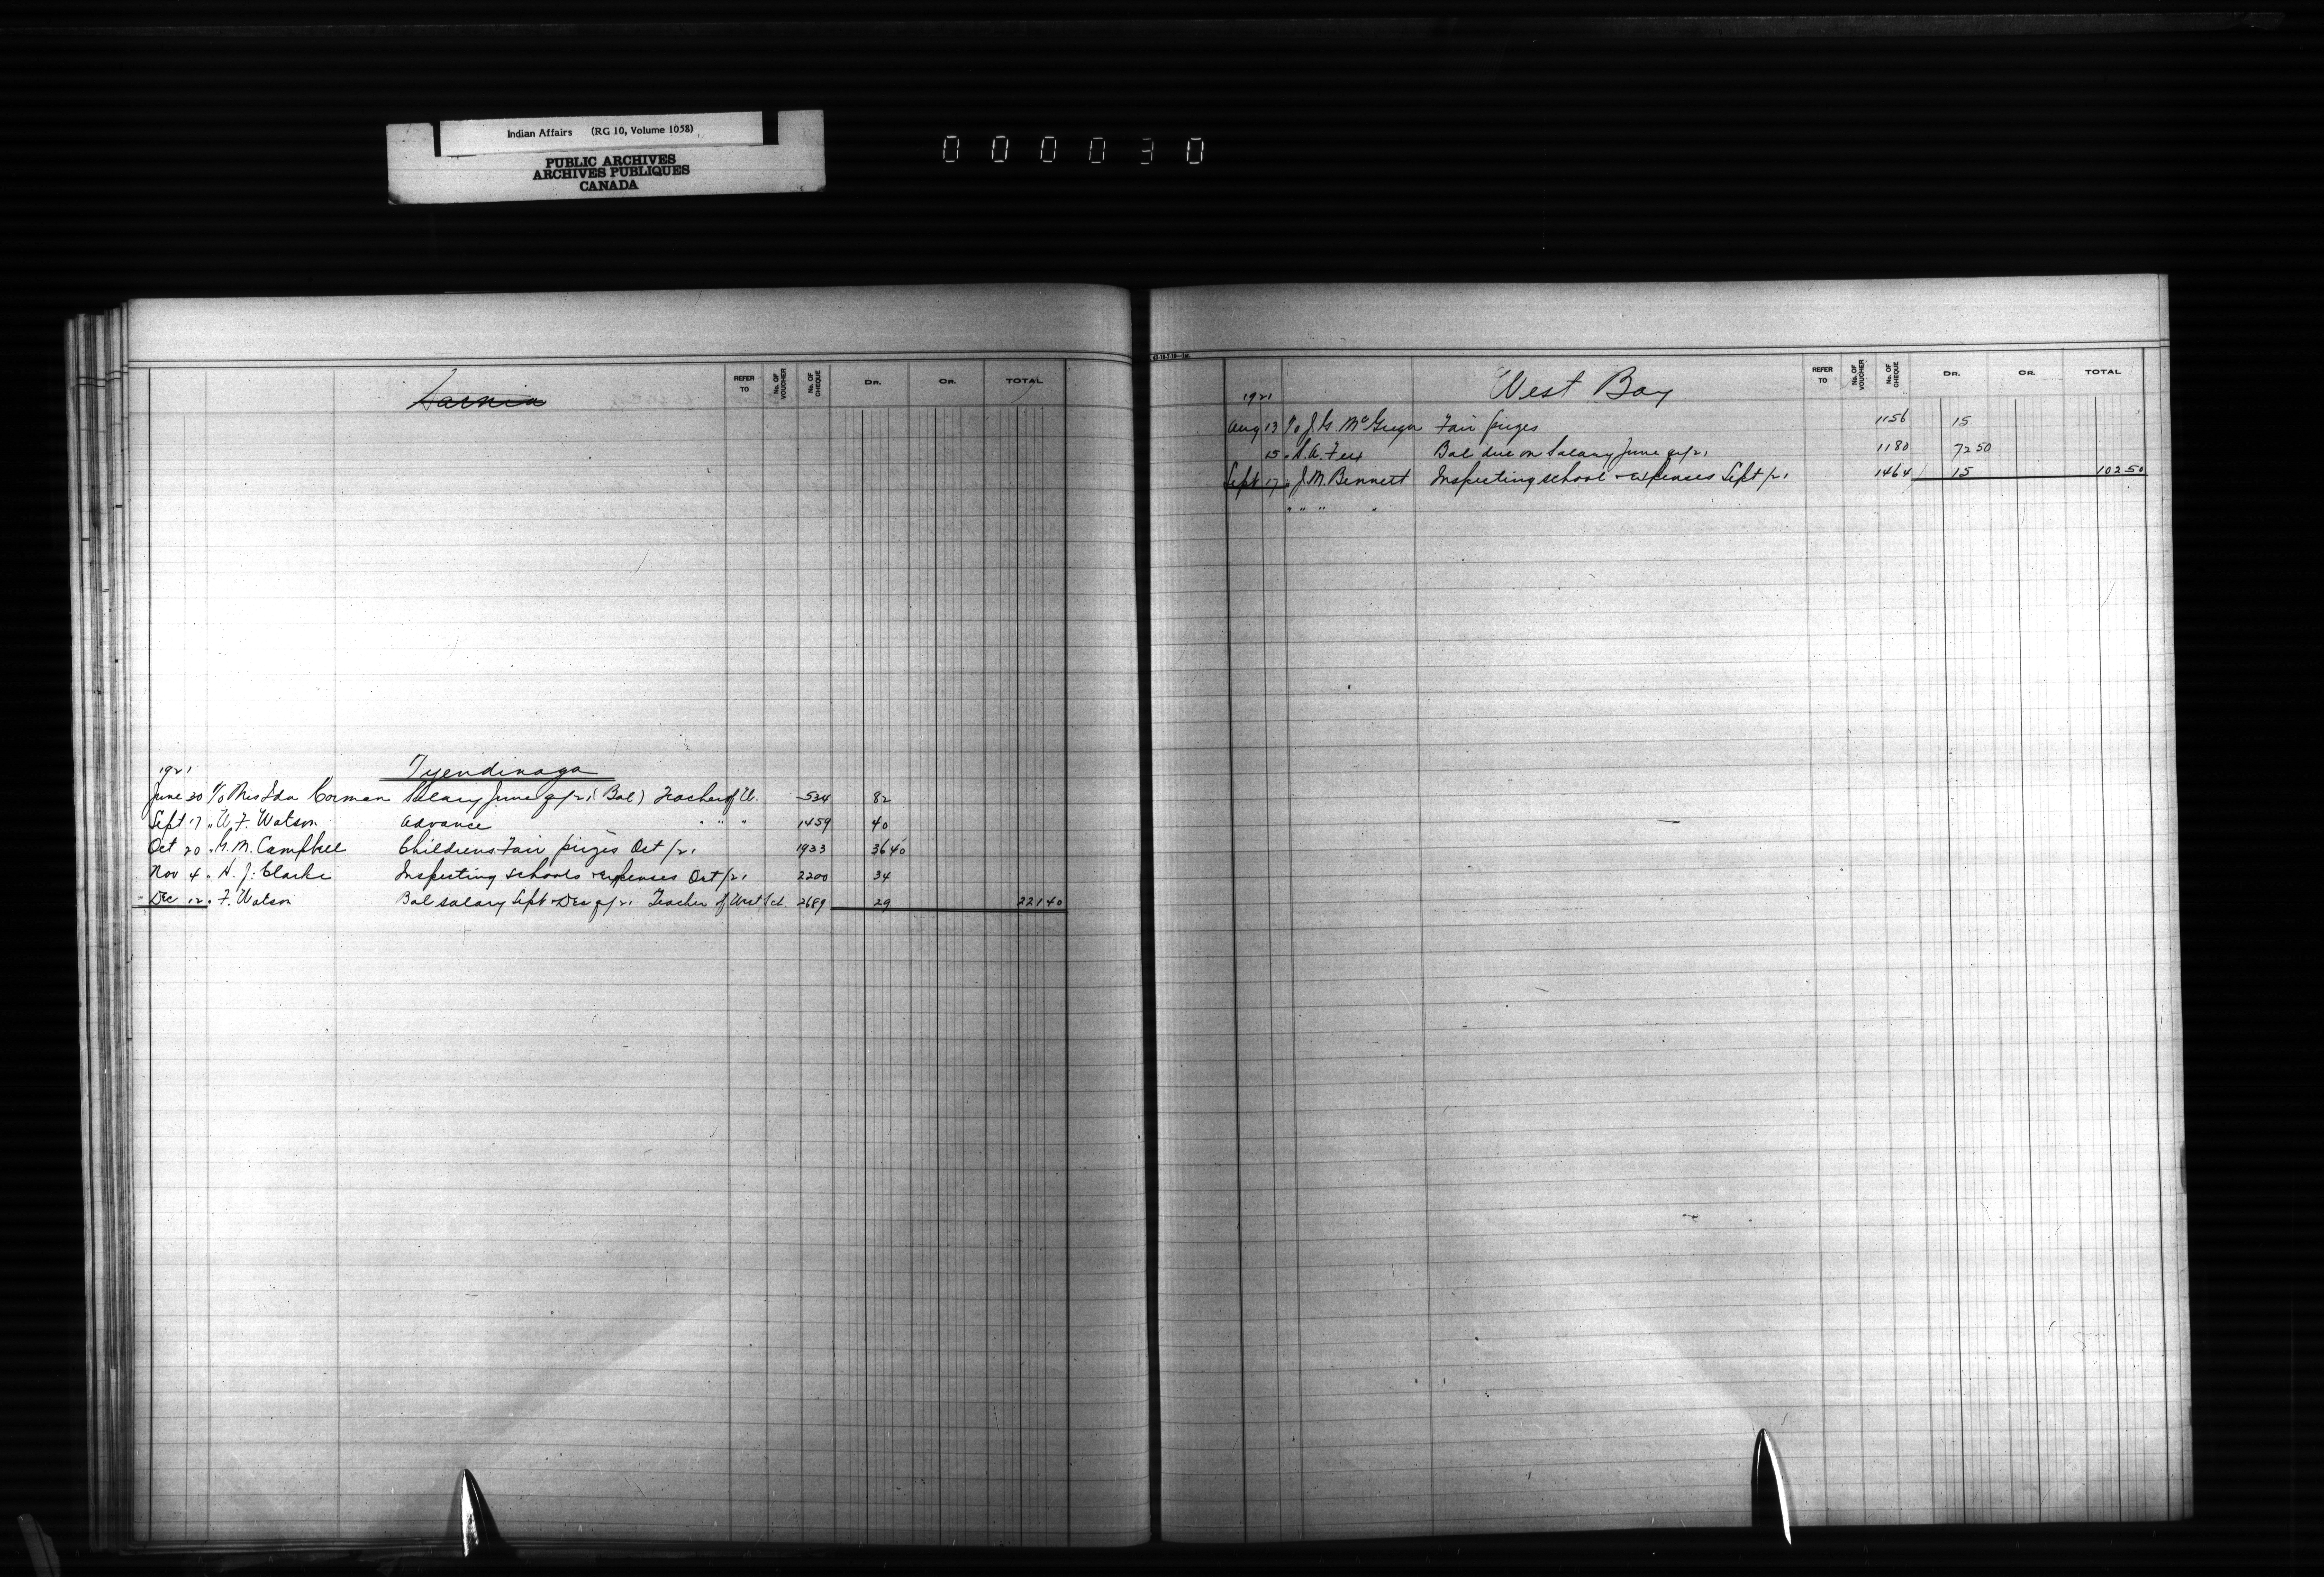 Indian Affairs (RG 10, Volume 1058)
PUBLIC ARCHIVES
ARCHIVES PUBLIQUES
CANADA
000030
Sarnia
REFER TO
No. OF VOUCHER
No. OF CHEQUE
DR.
CR.
TOTAL
1921 Tyendinaga
June 30 Miss Ida Corman Salary June qr/21 (Bal) Teacher of W. 534 82
Sept 17 " W. F. Watson Advance " " " 1459 40
Oct 20 " G. M. Campbell Childrens Fair prizes Oct /21 1933 36 40
Nov 4 " H. J. Clarke Inspecting schools & expenses Oct /21 2200 34
Dec 12 " F. Watson Bal salary Sept & Dec qr/21 Teacher of West Sch. 2689 29 221 40
REFER TO
No. OF VOUCHER
No. OF CHEQUE
DR.
CR.
TOTAL
1921 West Bay
Aug 13 J. G. McGregor Fair prizes 1156 15
15 " Bal due on Salary June qr/21 1180 72 50
Sept 17 " J. M. Bennett Inspecting school & expenses Sept /21 1464 15 102 50
" " " "